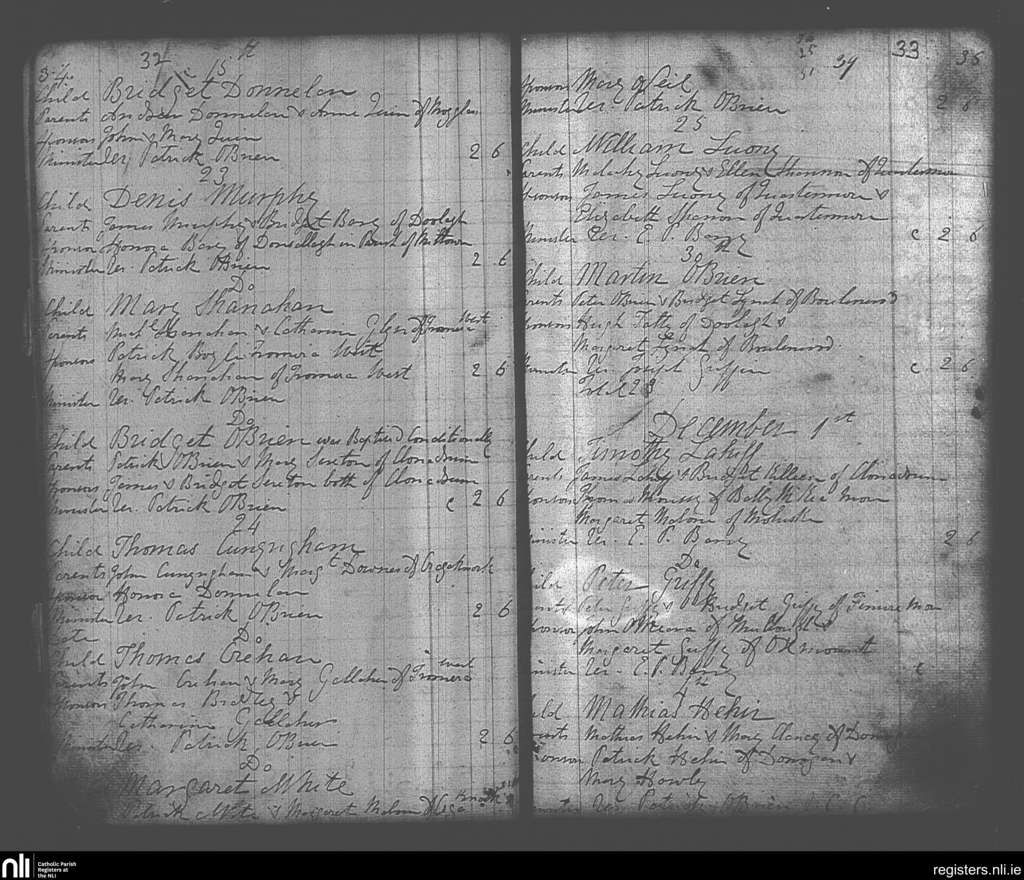 34 32
15th
Child Bridget Donnelan
Parents Donnelan & Anne Quin of
Sponsors John & Mary Quin
Minister Ver. Patrick OBrien 2 6
23
Child Denis Murphy
Parents James Murphy & Bridget Bary of Doologh
Sponsor Honora Bary of in Parish of Miltown
Minister Ver. Patrick OBrien 2 6
Do
Child Mary Shanahan
Parents Michl Shanahan & Catharine of Tromera West
Sponsors Patrick Tromera West
Mary Shanahan of Tromera West 2 6
Minister Ver. Patrick OBrien
Do
Child Bridget OBrien was Baptised Conditionally
Parents Patrick OBrien & Mary Sexton of Clonadrum
Sponsors James & Bridget Sexton both of Clonadrum
Minister Ver. Patrick OBrien c 2 6
24
Child Thomas Cunnigham
Parents John Cunnigham & Margt Downes of
Sponsor Honora Donnelan
Minister Ver. Patrick OBrien 2 6
Do
Child Thomas Crehan
Parents John Crehan & Mary Gallaher of Tromera west
Sponsors Thomas &
Catharine Gallaher
Minister Ver. Patrick OBrien 2 6
Do
Margaret White
Patrick White & Margaret Malone of
26
25
51
39 33 35
Sponsors Mary Neil
Minister Ver. Patrick OBrien 2 6
25
Child William Luony
Parents Malachy Luony & Ellen Shannon of
Sponsors James Luony of &
Elizabeth Shanon of
Minister Ver. E. P. Barry c 2 6
30th
Child Martin OBrien
Parents Peter OBrien & Bridget Lynch of
Sponsors Hugh Talty of Doologh &
Margaret Lynch of
Minister Ver. Joseph Griffin c 2 6
Total 28
December 1st
Child Timothy Lahiff
Parents James Lahiff & Bridget Killeen of Clonadrum
Sponsors Thomas of
Margaret Malone of
Minister Ver. E. P. Barry 2 6
Do
Child Peter Griffy
Parents Peter Griffy & Bridget Griffy of Finure Mor
Sponsor John of &
Margaret Griffy of
Minister Ver. E. P. Barry c
4th
Child Mathias Hehir
Parents Mathias Hehir & Mary Clancy of
Sponsors Patrick Hehir of Donogan &
Mary Howley
Minister Ver. Patrick OBrien
nli Catholic Parish
Registers at
the NLI
registers.nli.ie